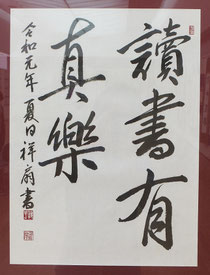 讀書有
真樂
令和元年夏日祥扇書